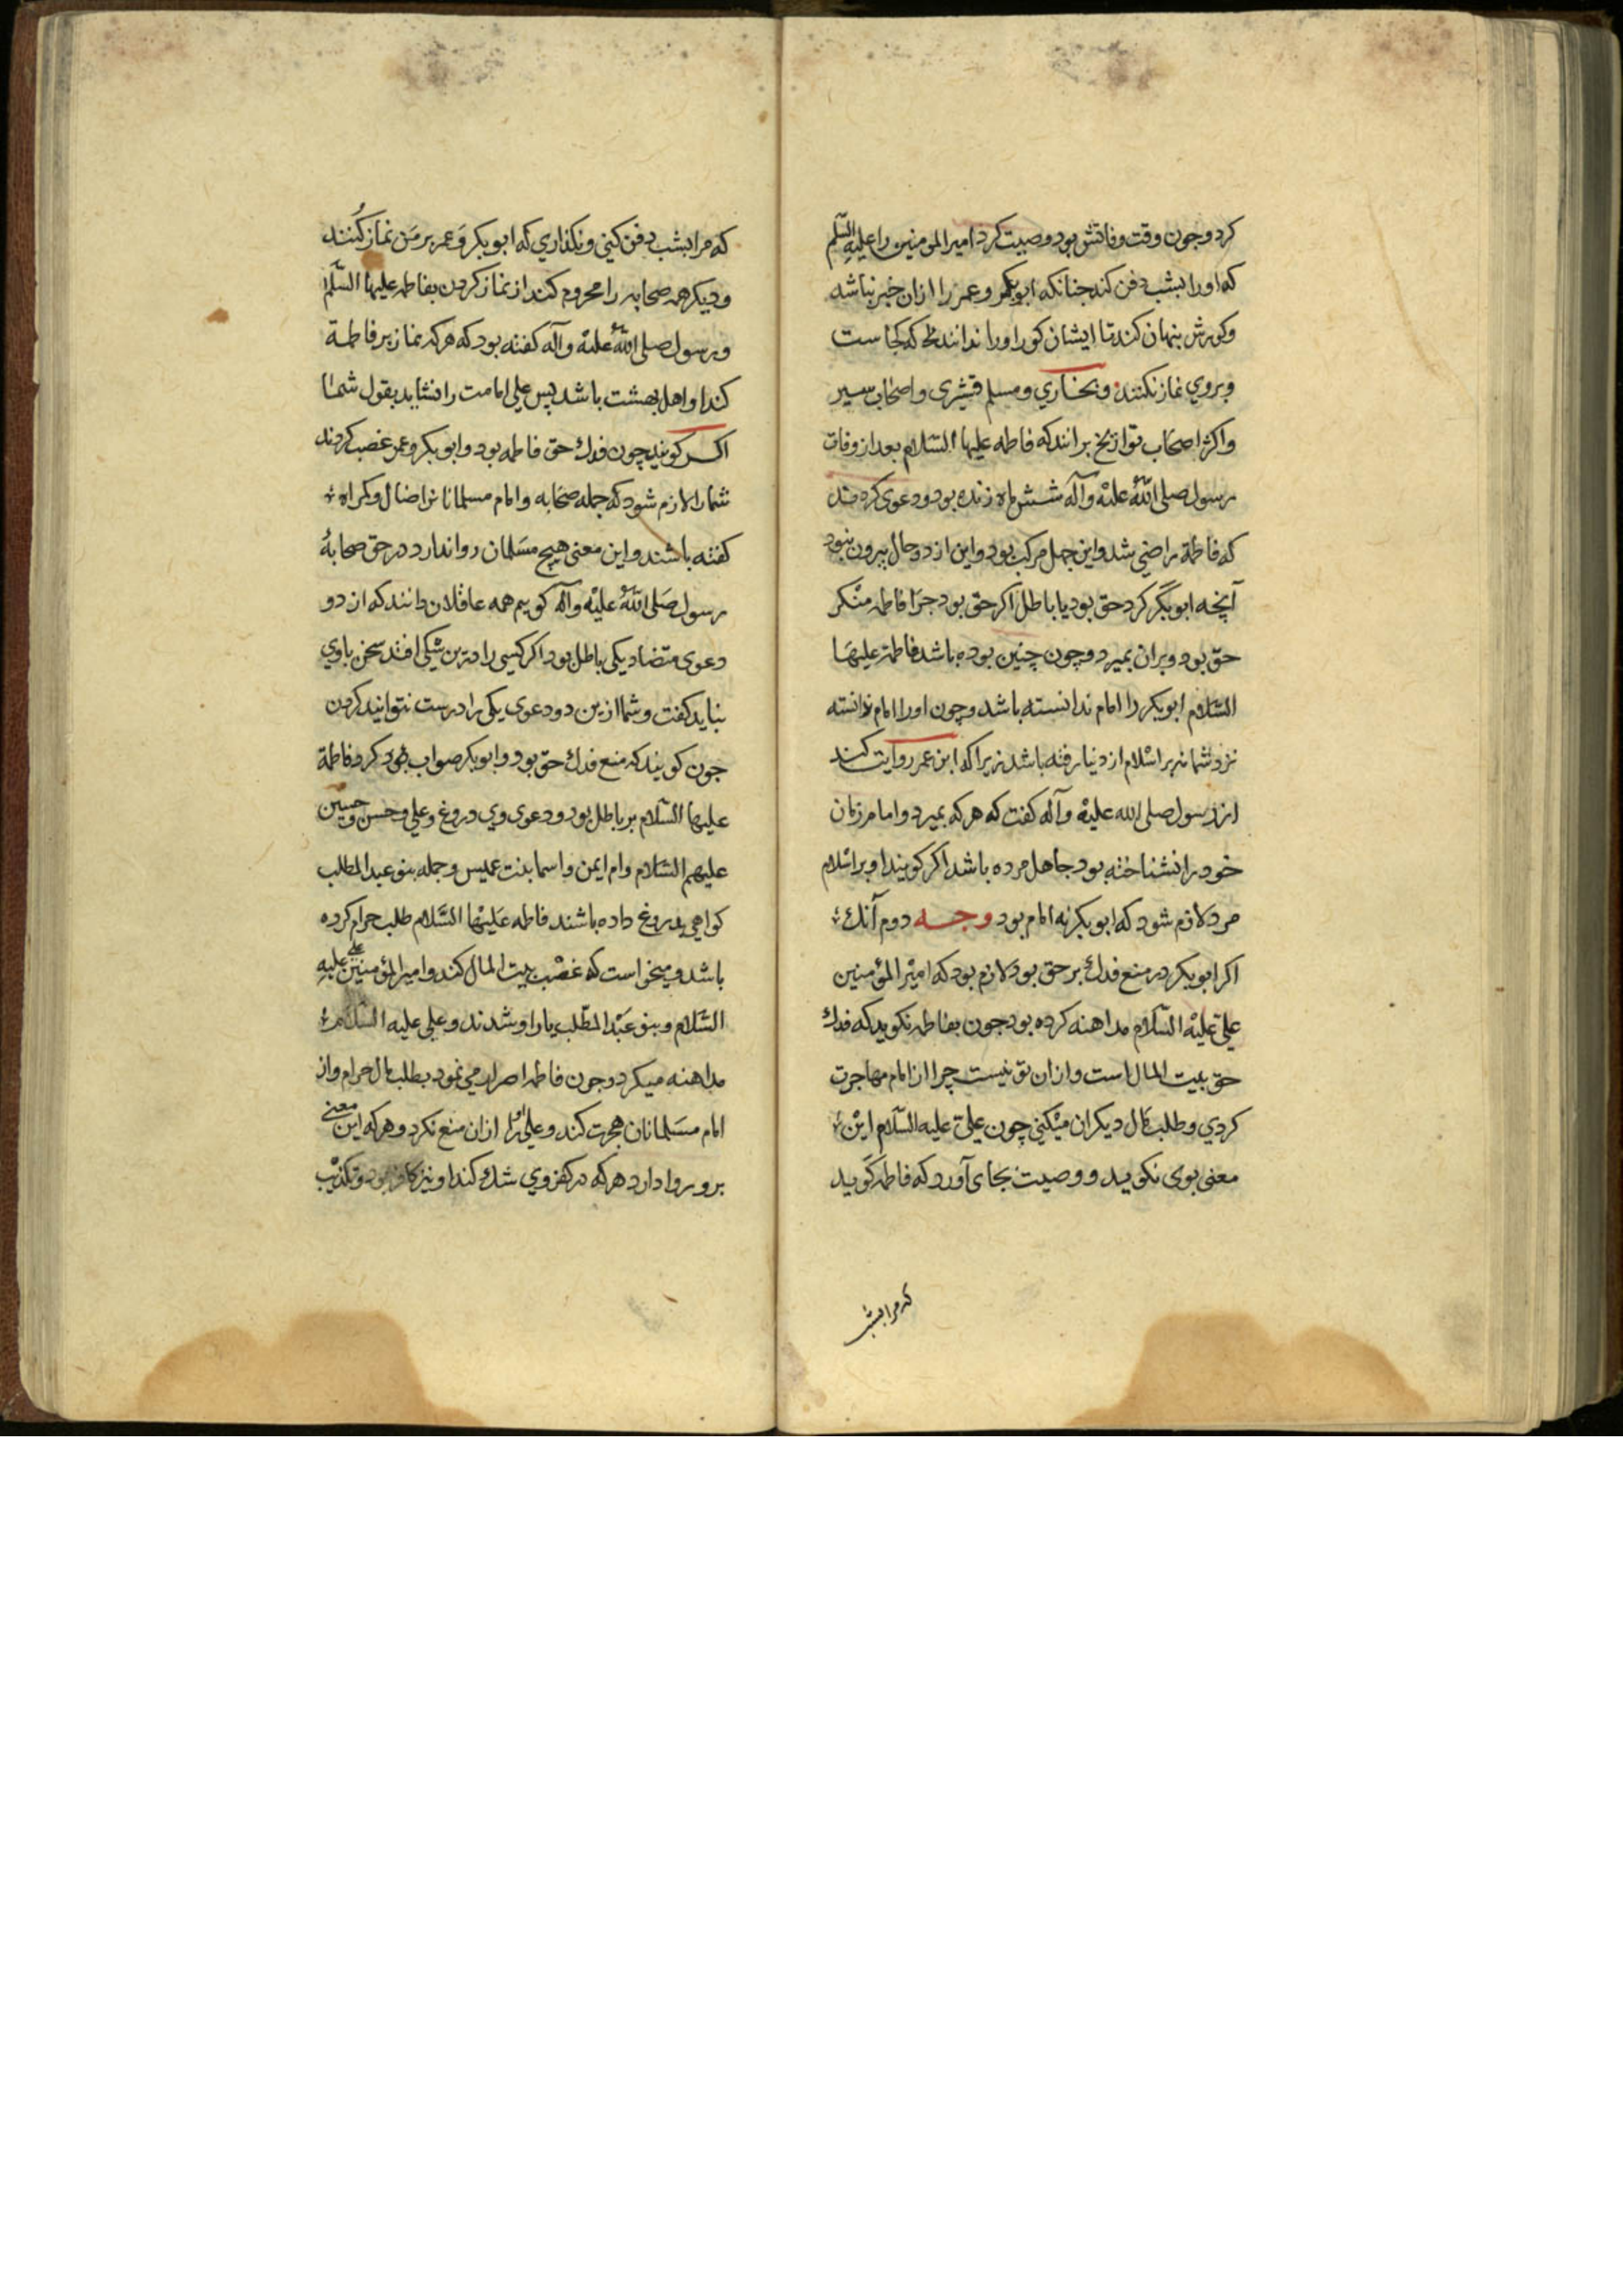 کرد و جون وقت وفاتش بود وصیت کرد امیر المومنین را علیه السلم
که او را بشب دفن کند جنانکه ابو بکر و عمر را ازان خبر نباشد
و کورش بنهان کند تا ایشان کور او را ندانند که کجاست
و بروي نماز نکنند و بخاري و مسلم قشیری و اصحاب سیر
و اکثر اصحاب تواریخ برانند که فاطمه علیها السلام بعد از وفات
رسول صلی الله علیه وآله شش ماه زنده بود و دعوی کرده‌اند
که فاطمة راضي شد و این جهل مرکب بود و این از دو حال بیرون نبود
آنچه ابو بکر کرد حق بود یا باطل اکر حق بود جرا فاطمه منکر
حق بود و بران بمیرد و چون چنین بوده باشد فاطمة علیها
السلام ابو بکر را امام ندانسته باشد و چون او را امام ندانسته
نزد شما نه بر اسلام از دنیا رفته باشد زیرا که ابن عمر روایت کند
از رسول صلی الله علیه وآله کفت که هر که بمیرد و امام زمان
خود را نشناخته بود جاهل مرده باشد اکر کویند او بر اسلام
مرد لازم شود که ابو بکر نه امام بود وجه دوم آنك
اکر ابو بکر در منع فدك بر حق بود لازم بود که امیر المؤمنین
علی علیه السلام مداهنه کرده بود جون بفاطمه نکوید که فدك
حق بیت المال است و ازان تو نیست چرا از امام مهاجرت
کردي و طلب مال دیکران میکني چون علی علیه السلام این
معنی بوی نکوید و وصیت بجای آورد که فاطمه کوید
که مرا بشب
که مرا بشب دفن کني و نکذاري که ابو بکر و عمر بر من نماز کنند
و دیکر همه صحابه را محروم کنند از نماز کردن بفاطمه علیها السلم
و رسول صلی الله علیه وآله کفته بود که هر که نماز بر فاطمة
کند او اهل بهشت باشد پس علی امامت را نشاید بقول شما
اکر کویند چون فدك حق فاطمه بود و ابو بکر و عمر غصب کردند
شما را لازم شود که جمله صحابه و امام مسلمانان را ضال و کمراه
کفته باشند و این معنی هیچ مسلمان روا ندارد در حق صحابهٔ
رسول صلی الله علیه وآله کویم همه عاقلان دانند که از دو
دعوی متضاد یکی باطل بود اکر کسي را درین شکی افتد سخن باوي
نباید کفت و شما ازین دو دعوی یکی را درست نتوانید کردن
جون کویند که منع فدك حق بود و ابو بکر صواب کرد و فاطمة
علیها السلام بر باطل بود و دعوی وي دروغ و علي و حسن و حسین
علیهم السلام و ام ایمن و اسما بنت عمیس و جمله بنو عبد المطلب
کواهي بدروغ داده باشند فاطمه علیها السلام طلب حرام کرده
باشد و میخواست که غصب بیت المال کند و امیر المؤمنین علی علیه
السلام و بنو عبد المطلب یار او شدند و علی علیه السلام
مداهنه میکرد و جون فاطمه اصرار مي نمود بطلب مال حرام و از
امام مسلمانان هجرت کند و علی او را ازان منع نکرد و هر که این معنے
برو روا دارد هر که در کفر وي شك کند او نیز کافر بود و تکذیب